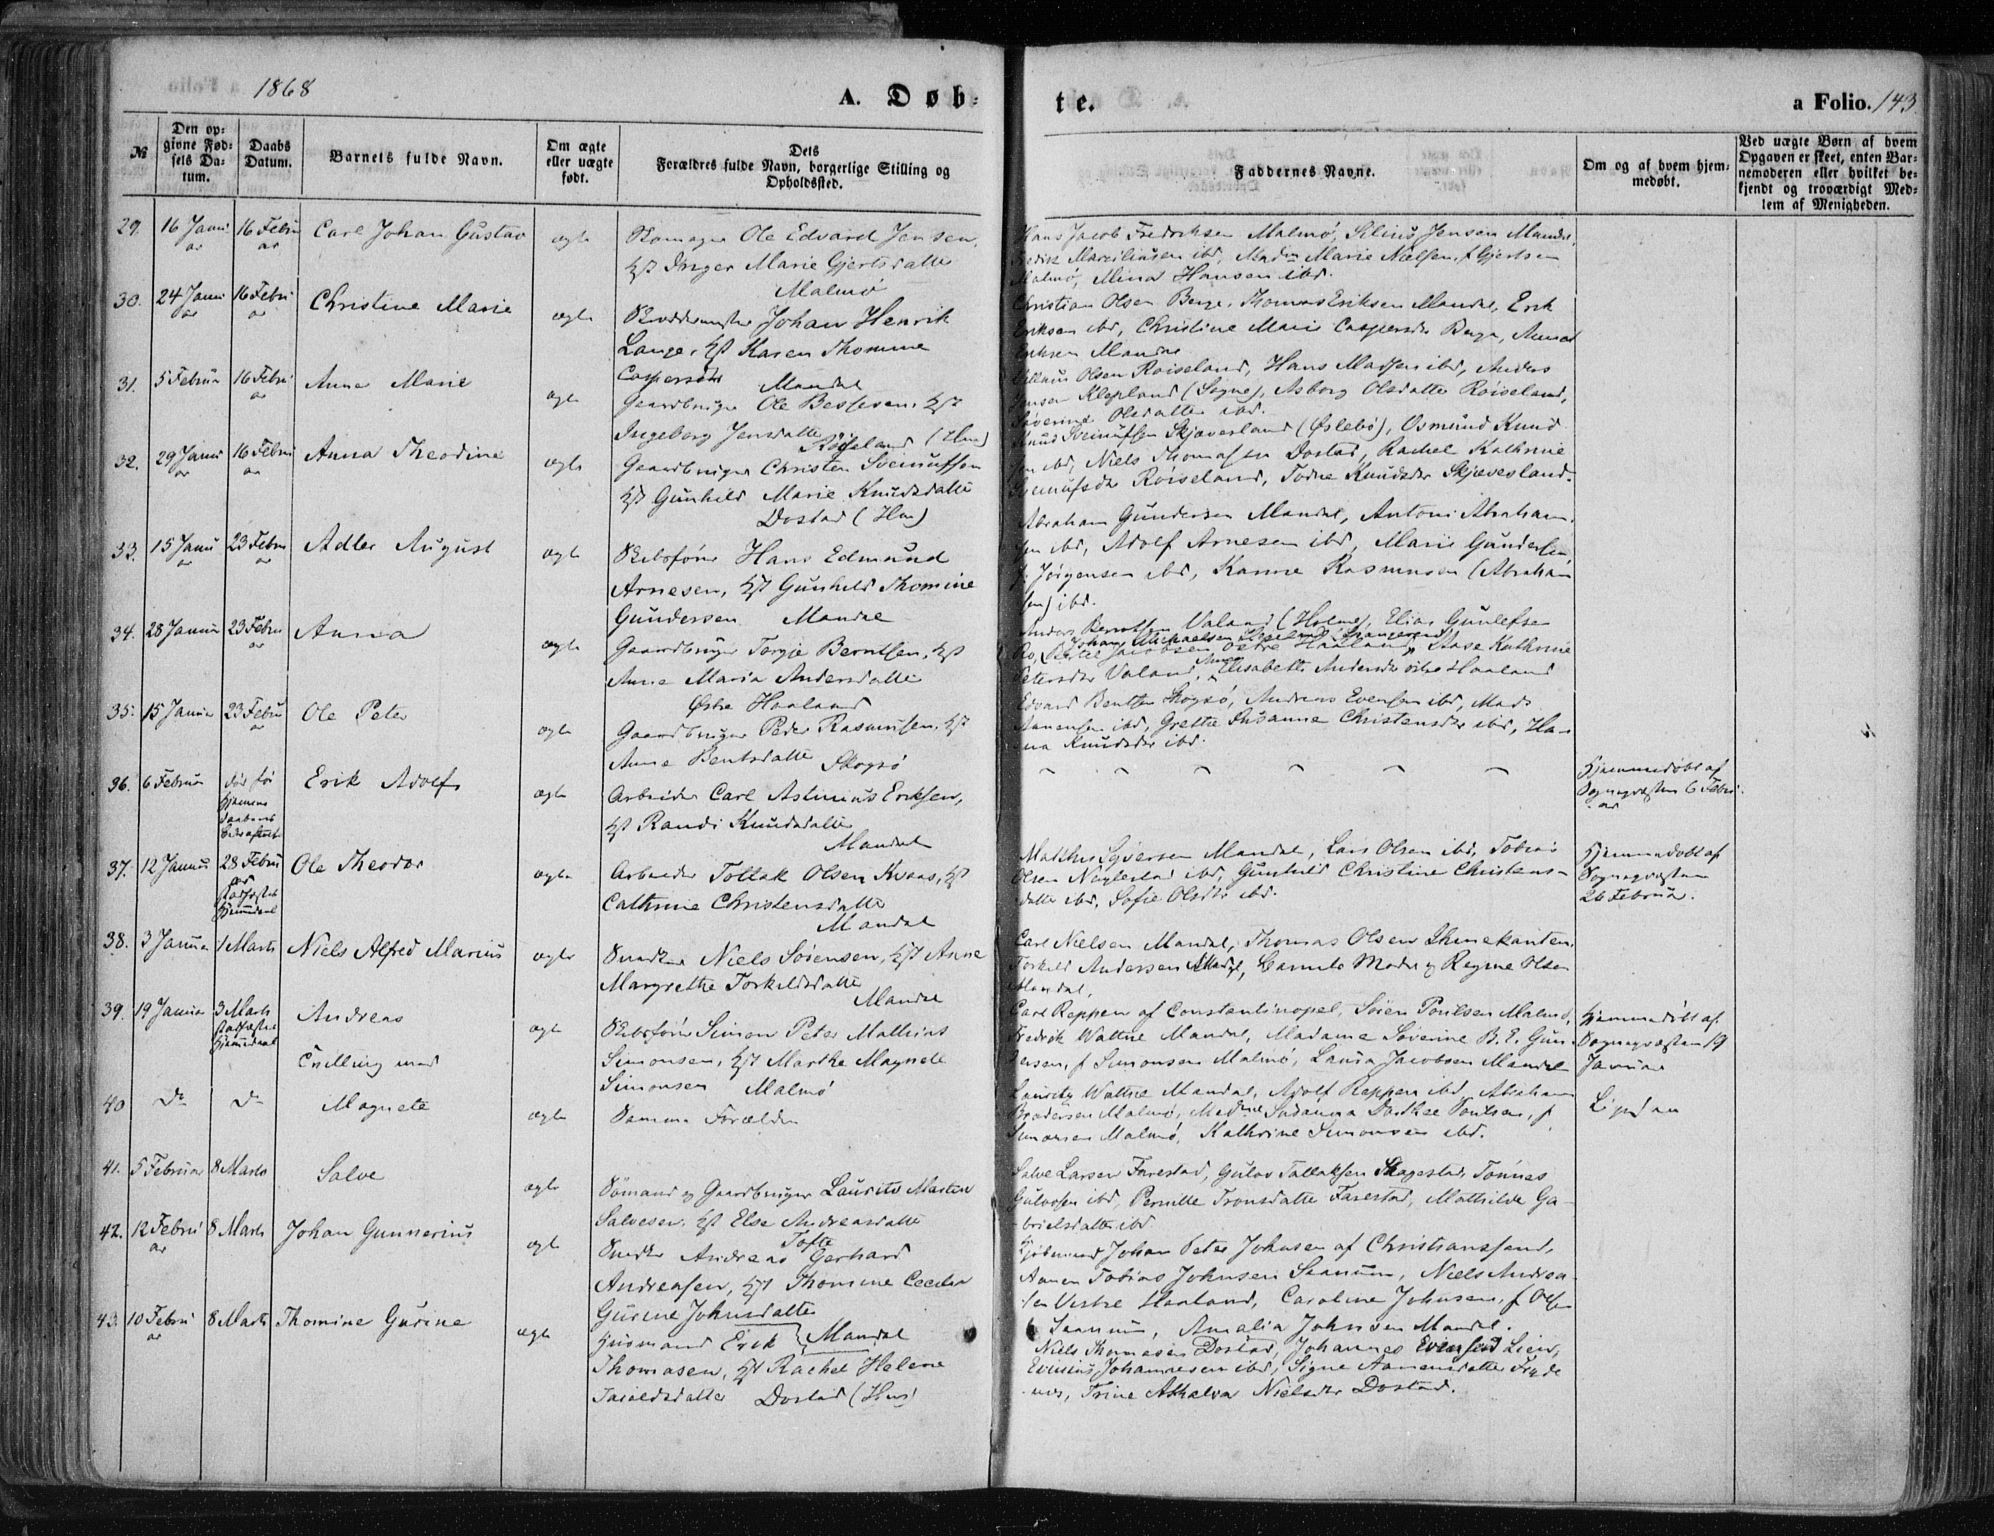 1868
A. Døb-
te.
a Folio. 143
№
Den op-
givne Fød-
sels Da-
tum.
Daabs
Datum.
Barnets fulde Navn.
Om ægte
eller uægte
født.
Dets
Forældres fulde Navn, borgerlige Stilling og
Opholdssted.
Faddernes Navne.
Om og af hvem hjem-
medøbt.
Ved uægte Børn af hvem
Opgaven er skeet, enten Bar-
nemoderen eller hvilket be-
kjendt og troværdigt Med-
lem af Menigheden.
29. 16 Janu
ar
16 Febru
ar
Carl Johan Gustav
ægte
Ole Edvard Jensen,
Inger Marie Gjertsdatter
Malmø
Hans Jacob Fredriksen Malmø, Jensen Mandal,
ibd, Marie Nielsen, f Gjertsen
Malmø, Mina Hansen ibd.
30. 24 Janu
ar
16 Febru
ar
Christine Marie
ægte
Johan Henrik
Lange, Karen Thomine
Caspersdtr Mandal
Christian Olsen Berge, Thomas Eriksen Mandal, Erik
Eriksen ibd, Christine Marie Caspersdtr Berge,
Eriksen Mandal
31. 5 Februar
16 Febru
ar
Anne Marie
ægte
Gaardbruger Ole Bessesen,
Ingeborg Jensdatter Røiseland (Hm)
Olsen Roiseland, Hans ibd, Anders
Jensen Klepland (Sogne), Asborg Olsdatter Røiseland,
Søverine Olsdatter ibd.
32. 29 Janu
ar
16 Febru
ar
Anna Theodine
ægte
Gaardbruger Christen
Gunhild Marie Knudsdatter
Dostad (Hm)
Knud Skjævesland (Øslebø), Osmund Knud
sen ibd, Niels Thomassen Dostad, Rachel Kathrine
Røiseland, Todne Knudsdtr Skjævesland.
33. 15 Janu
ar
23 Febru
ar
Adler August
ægte
Skibsfører Hans Edmund
Arnesen, Gunhild Thomine
Gundersen Mandal
Abraham Gundersen Mandal, Antoni Abraham-
sen ibd, Adolf Arnesen ibd, Marie Gundersen
f. Jørgensen ibd, Rasmusen (Abraham
sen) ibd.
34. 28 Januar
23 Febru
ar
Anna
ægte
Gaardbruger Torgje Berntsen,
Anne Maria Andersdatter
Østre Haaland
Anders Berntsen Valand (Holme), Elias Gunlefsen
Jacobsen østre Haaland, Aase Kathrine
Petersdtr Valand, Elisabeth Andersdtr østre Haaland
35. 15 Januar
23 Febru
ar
Ole Peter
ægte
Gaardbruger Peder Rasmusen,
Anne Bentsdatter Skogsø
Edvard Bentsen Skogsø, Andreas Evensen ibd, Mads
Aanensen ibd, Grethe Susanne Christensdtr ibd, Ha-
na Knudsdtr ibd.
36. 6 Februar
død før
Hjemme
daabens
Bekræftelse
Erik Adolf
ægte
Arbeider Carl Eriksen,
Randi Knudsdatter
Mandal
Hjemmedøbt af
Sognepræsten 6 Febru
ar
37. 12 Januar
28 Febru
ar
stadfæstet
Hjemmedaab
Ole Theodor
ægte
Arbeider Tollak Olsen Kvaas,
Cathrine Christensdatter
Mandal
Mathis Syversen Mandal, Lars Olsen ibd, Tobias
Olsen Nøglestad ibd, Gunhild Christine Christens-
datter ibd, Sofie Olsdtr ibd.
Hjemmedøbt af
Sognepræsten
26 Februar.
38. 3 Januar
1 Marts
Niels Alfred Marius
ægte
Snedker Niels Sørensen, Anne
Margrethe Torkildsdatter
Mandal
Carl Nielsen Mandal, Thomas Olsen
Torkild Andersen Mandal, og Regine Olsen
Mandal,
39. 19 Januar
3 Marts
stadfæstet
Hjemmedaab
Andreas
Tvilling med
ægte
Skibsfører Simon Peter Mathias
Simonsen, Marthe Magnete
Simonsen Malmø
Carl Reppen af Constantinopel, Søren Poulsen Malmø,
Fredrik Wattne Mandal, Madame Søverine B. E. Gun-
dersen, f Simonsen Malmø, Laura Jacobsen Mandal
Hjemmedøbt af
Sognepræsten 19
Januar
40 Do Do
Magnete
ægte
Samme Forældre
Lauritz Wattne Mandal, Adolf Reppen ibd, Abraham
Brødersen Malmø, Madme Susanna Dorthea Poulsen, f.
Simonsen Malmø, Kathrine Simonsen ibd.
Ligesaa
41. 5 Februar 8 Marts
Salve
ægte
Sømand og Gaardbruger Laurits Marten
Salvesen, Else Andreasdatter
Tofte
Salve Larsen Farestad, Gulov Tallaksen Skagestad, Tønnes
Gulovsen ibd, Pernille Tronsdatter Farestad, Mathilde Ga-
brielsdatter ibd.
42. 12 Febru
ar
8 Marts
Johan Gunnerius
ægte
Snedker Andreas Gerhard
Andreasen, Thomine Cecilia
Gurine Johnsdatter
Mandal
Kjøbmand Johan Peter Johnsen af Christianssand,
Aanen Tobias Johnsen Saanum, Niels Andrea-
sen Vestre Haaland, Caroline Johnsen, f Olsen
Saanum, Amalia Johnsen Mandal.
43. 10 Febru
ar
8 Marts
Thomine Gurine
ægte
Husmand Erik
Thomasen, Rachel Helene
Taraldsdatter Dostad (Hm)
Niels Thomasen Dostad, Johannes Evensen Lien,
Johannesen ibd, Signe Aanensdatter
Trine Athalia Nielsdtr Dostad.